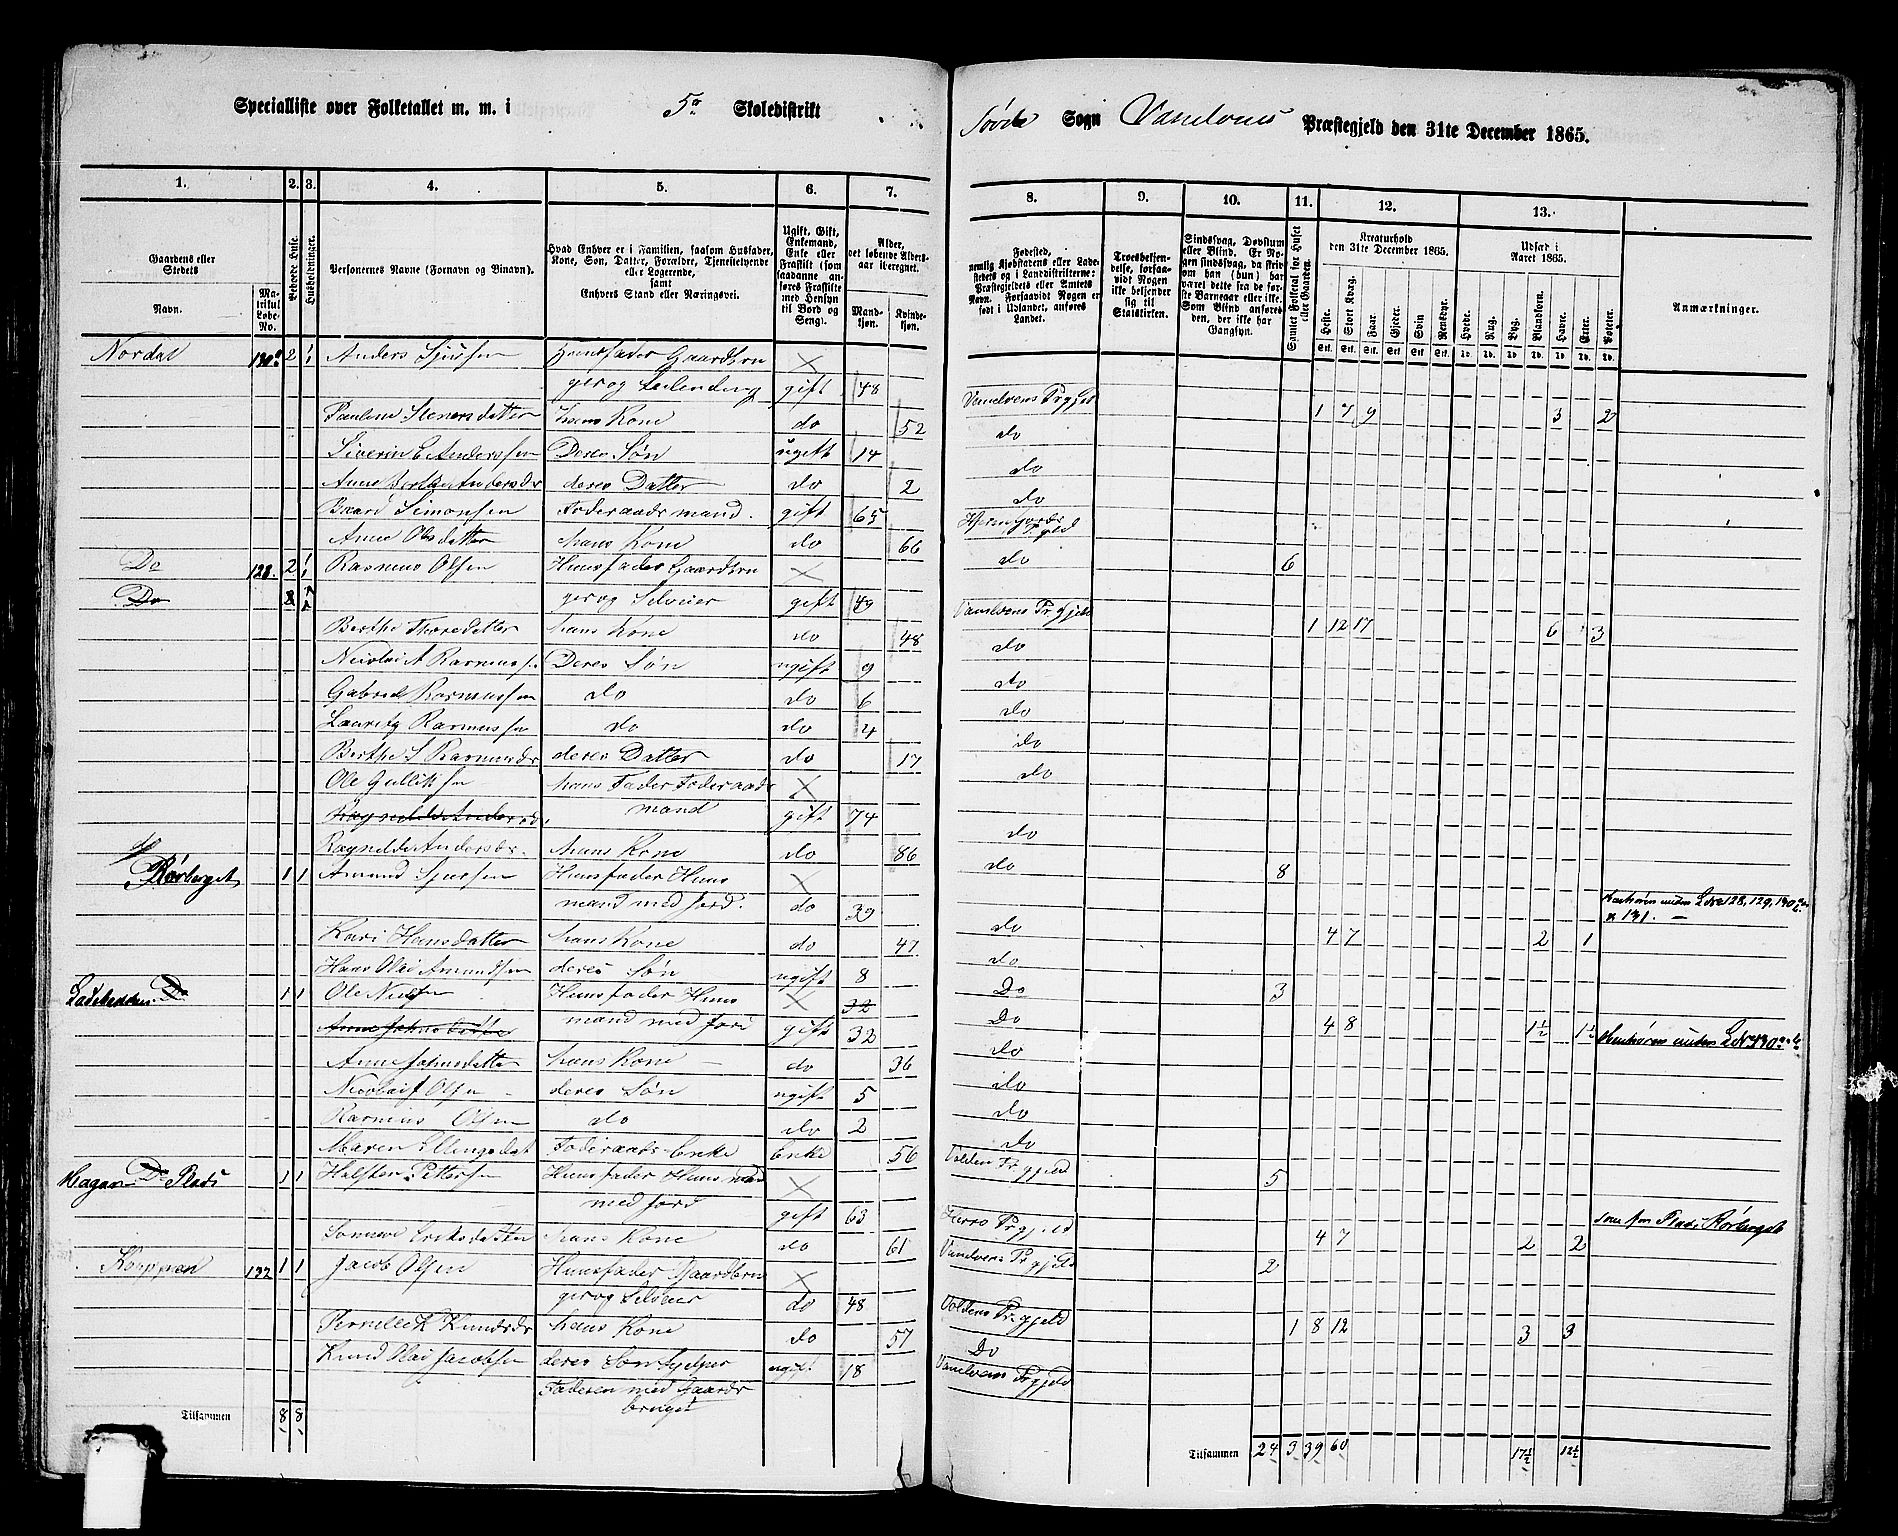 Specialliste over Folketallet m. m. i 5te Skoledistrikt
Søvde Sogn Vanelvens Præstegjeld den 31te December 1865.
1. 2. 3. 4. 5. 6. 7.
8. 9. 10. 11. 12. 13.
Gaardens eller Stedets
Navn. Matrikul Løbe-No.
Beboede Huse.
Husholdninger.
Personernes Navne (Fornavn og Tilnavn).
Hvad Enhver er i Familien, saasom Husfader, Kone, Søn, Datter, Forældre, Tjenestetyende eller Logerende, samt Enhvers Stand eller Næringsvei.
Ugift, Gift, Enkemand, Enke eller Fraskilt (som saadanne anføres Fraskilte med Hensyn til Bord og Seng).
Alder, det løbende Aldersaar iberegnet.
Mandkjøn. Kvindekjøn.
Fødested, nemlig Kjøbstadens eller Ladestedets og i Landdistrikterne: Præstegjeldets eller Amtets Navn. Forsaavidt Nogen er født i Udlandet, anføres Landet.
Troesbekjendelse, forsaavidt Nogen ikke bekjender sig til Statskirken.
Sindssvag, Døvstum eller Blind. Er Nogen sindssvag, da skrives om han (hun) har været dette fra de første Barneaar eller ikke. Som Blind anføres den, der ikke har Gangsyn.
Samlet Folketal for Huset eller Gaarden.
Kreaturhold den 31te December 1865.
Heste. Stort Kvæg. Faar. Gjeder. Svin Rensdyr.
Udsæd i Aaret 1865.
Hvede. Rug. Byg. Blandkorn. Havre. Erter. Poteter.
Anmærkninger.
Nordal 130a 2 1/1 Anders Sjursen Huusfader Gaardbru
ger og Leilending gift 48 Vanelvens Prgjeld 1 7 9 3 2
Pauline Stenersdatter hans Kone do 52 do
Siverin E Anderssen Deres Søn ugift 14 do
Anne Berthe Andersdr deres Datter do 2 do
Baard Simonsen Føderaadsmand gift 65 Prgjeld
Anne Olsdatter hans Kone do 66 do 6
Do 128. 2 1/1 Rasmus Olsen Huusfader Gaardbru
Do ger og Selveier gift 49 Vanelvens Prgjeld 1 12 17 6 3
Berthe Thoredatter hans Kone do 48 do
Nicolai A Rasmussen Deres Søn ugift 9 do
Gabriel Rasmussen do do 6 do
Lauritz Rasmussen do do 4 do
Berthe S Rasmusdr deres Datter do 17 do
Ole Gullikssen hans Fader Føderaads
Ragnilde Andersd. mand gift 74 do
Ragnilde Andersdr. hans Kone do 86 do 8
Rørberget 1 1 Amund Sjursen Huusfader Huus
mand med Jord. do 39 do 128, 129, 130 131.
Kari Hansdatter hans Kone do 47 do 4 7 2 1
Hans Olai Amundsen deres Søn ugift 8 Do 3
Do 1 1 Ole Nielsen Huusfader Huus 32
Anne Johnsdatter mand med Jord gift 32 Do 4 8 1½ 1½
Anne Johnsdatter hans Kone do 36 do
Nicolai Olsen deres Søn ugift 5 do
Rasmus Olsen do do 2 do
Maren Ellingsdat Føderaads Enke Enke 56 Volden Prgjeld 5
Hagan Do Plads 1 1 Halsten Pettersen Huusfader Huusmand
med Jord gift 63 Herrø Prgjeld 4 7 2 2
Eriksdatter hans Kone do 61 Vanelvens Prgjeld 2
Koppen 132 1 1 Jacob Olsen Huusfader Gaardbru
ger og Selveier do 48 Voldens Prgjeld 1 8 12 3 3
Pernille K Knudsdr hans Kone do 57 Do
Knud Olai Jacobsen deres Søn hjelper ugift 18 Vanelvens Prgjeld
Faderen med Gaards
bruget
Tilsammen 8 8
Tilsammen 24 3 39 60 17½ 12½